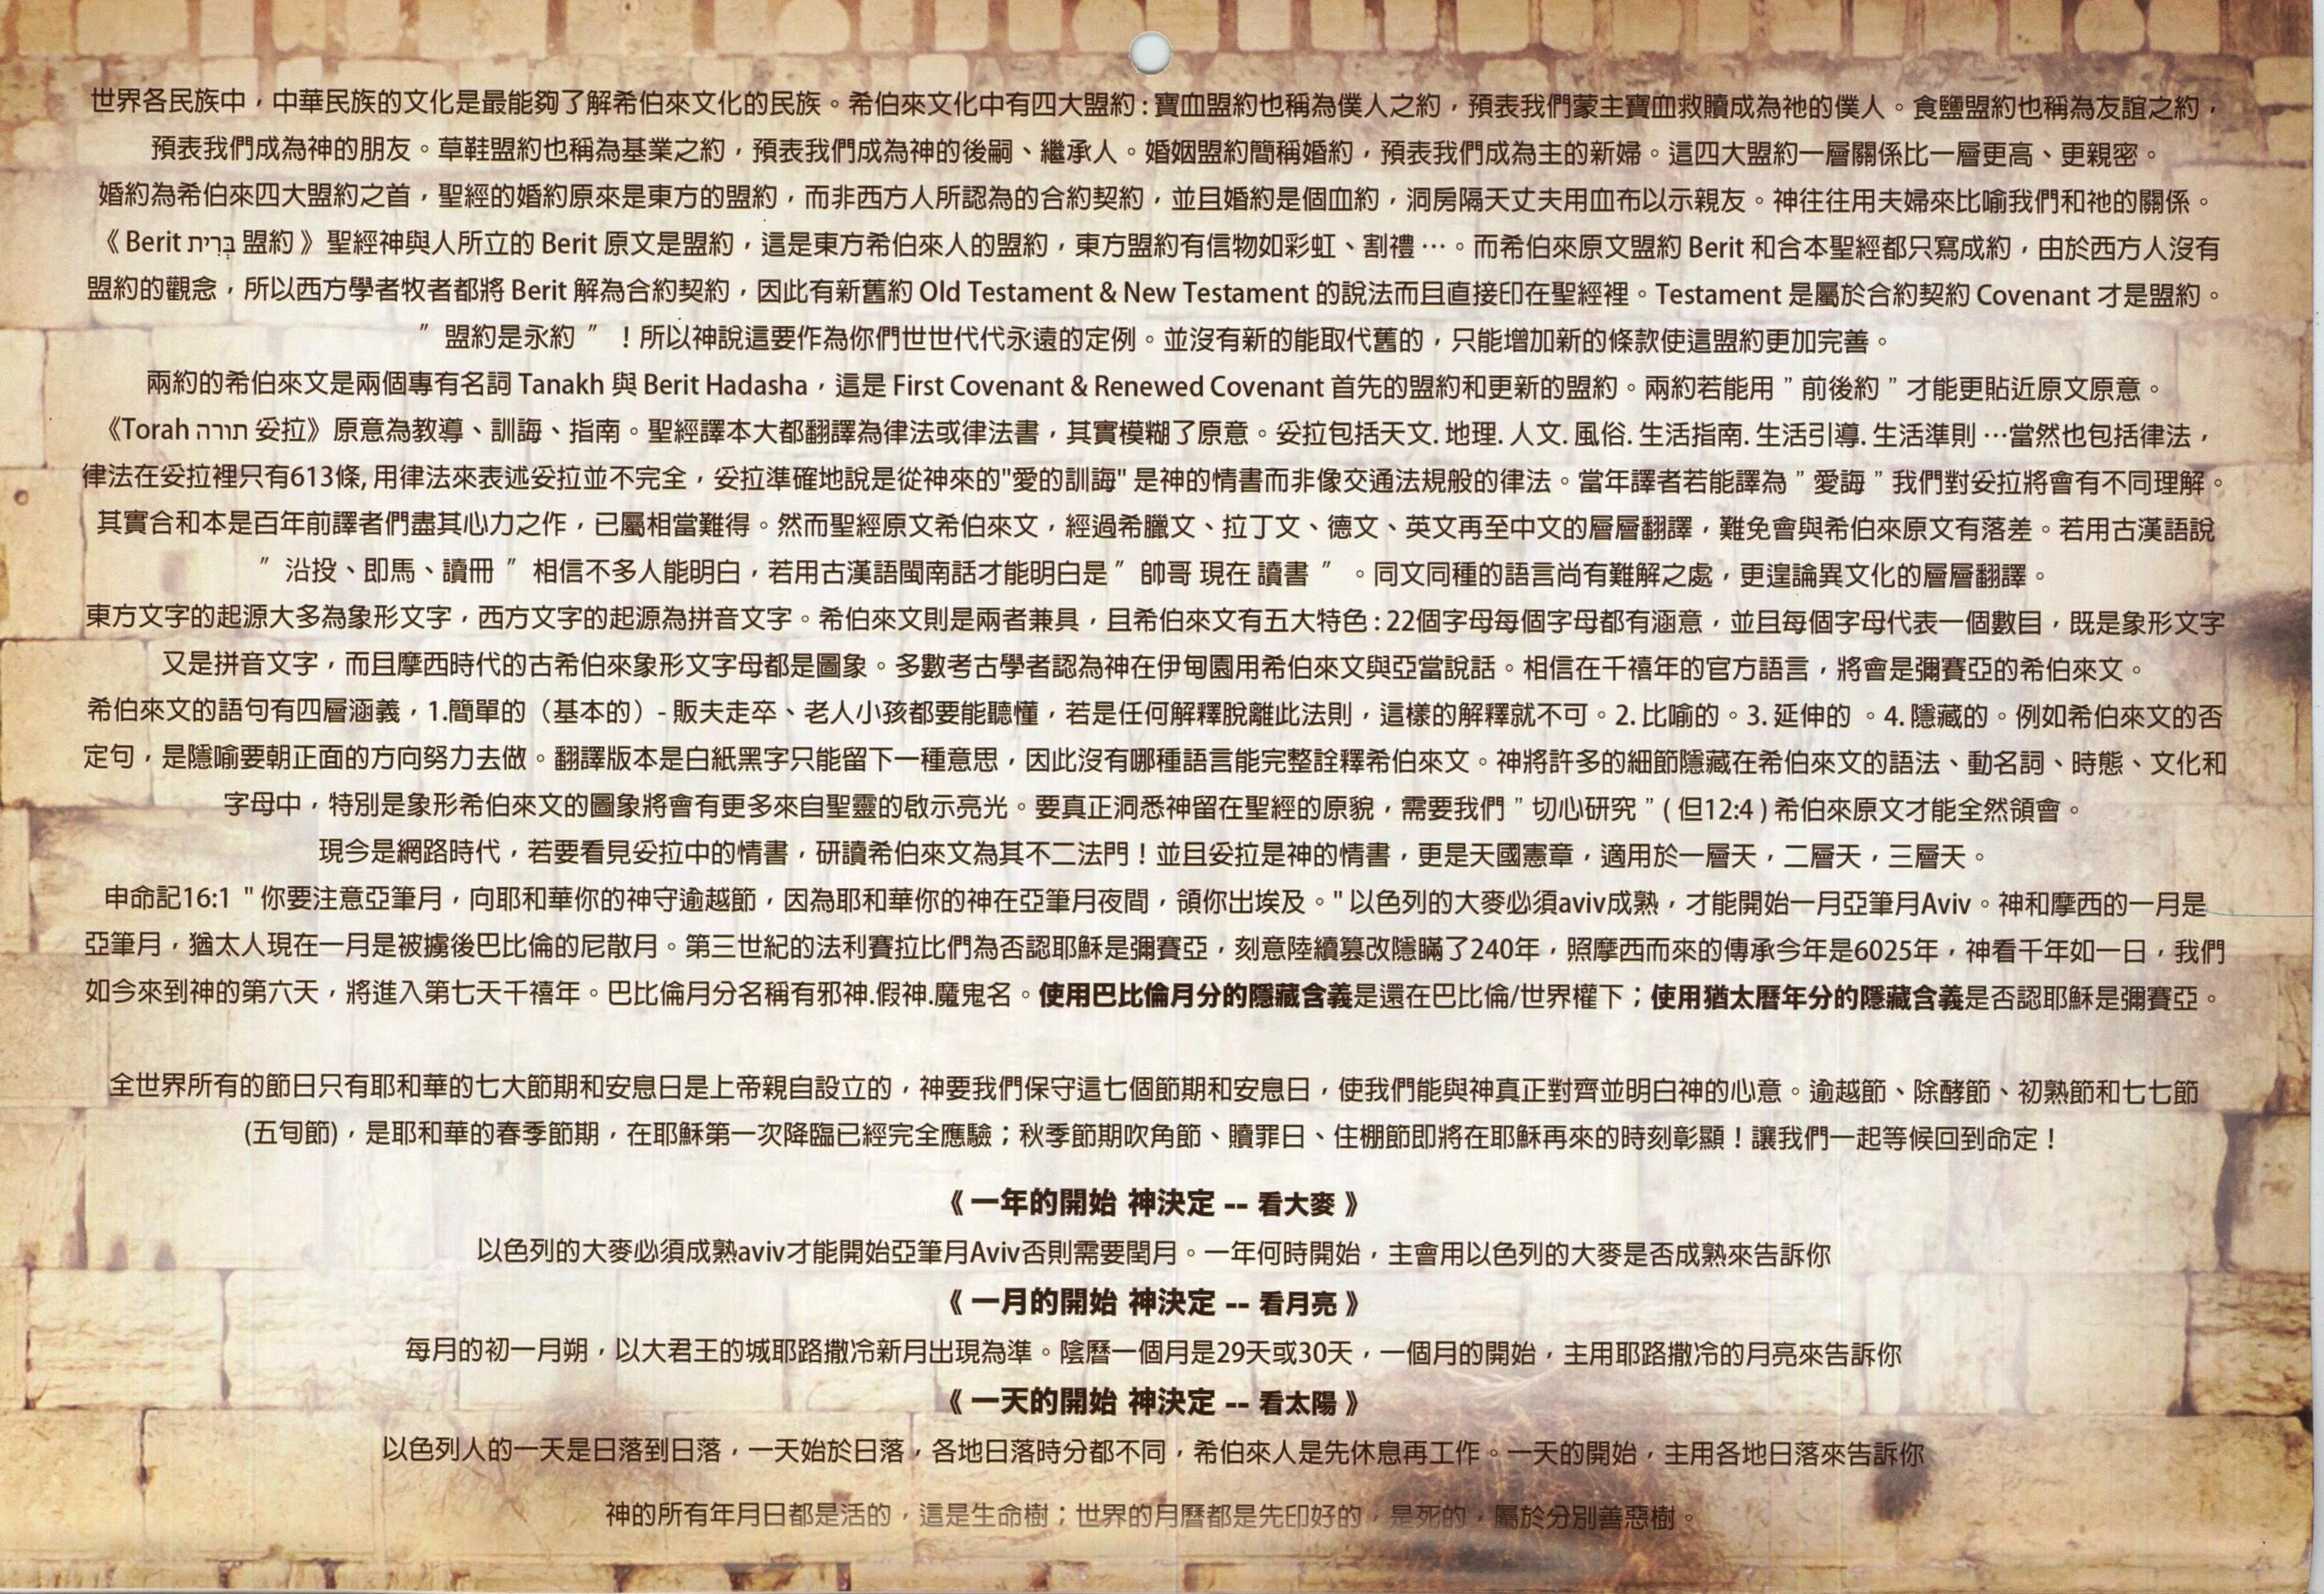 世界各民族中，中華民族的文化是最能夠了解希伯來文化的民族。希伯來文化中有四大盟約：寶血盟約也稱為僕人之約，預表我們蒙主寶血救贖成為祂的僕人。食鹽盟約也稱為友誼之約，
預表我們成為神的朋友。草鞋盟約也稱為基業之約，預表我們成為神的後嗣、繼承人。婚姻盟約簡稱婚約，預表我們成為主的新婦。這四大盟約一層關係比一層更高、更親密。
婚約為希伯來四大盟約之首，聖經的婚約原來是東方的盟約，而非西方人所認為的合約契約，並且婚約是個血約，洞房隔天丈夫用血布以示親友。神往往用夫婦來比喻我們和祂的關係。
《 Berit בְּרִית 盟約 》聖經神與人所立的 Berit 原文是盟約，這是東方希伯來人的盟約，東方盟約有信物如彩虹、割禮 …。而希伯來原文盟約 Berit 和合本聖經都只寫成約，由於西方人沒有
盟約的觀念，所以西方學者牧者都將 Berit 解為合約契約，因此有新舊約 Old Testament & New Testament 的說法而且直接印在聖經裡。Testament 是屬於合約契約 Covenant 才是盟約。
”盟約是永約 ”！所以神說這要作為你們世世代代永遠的定例。並沒有新的能取代舊的，只能增加新的條款使這盟約更加完善。
兩約的希伯來文是兩個專有名詞 Tanakh 與 Berit Hadasha，這是 First Covenant & Renewed Covenant 首先的盟約和更新的盟約。兩約若能用 ” 前後約 ” 才能更貼近原文原意。
《Torah תורה 妥拉》原意為教導、訓誨、指南。聖經譯本大都翻譯為律法或律法書，其實模糊了原意。妥拉包括天文. 地理. 人文. 風俗. 生活指南. 生活引導. 生活準則 …當然也包括律法，
律法在妥拉裡只有613條, 用律法來表述妥拉並不完全，妥拉準確地說是從神來的"愛的訓誨" 是神的情書而非像交通法規般的律法。當年譯者若能譯為 ” 愛誨 ” 我們對妥拉將會有不同理解。
其實合和本是百年前譯者們盡其心力之作，已屬相當難得。然而聖經原文希伯來文，經過希臘文、拉丁文、德文、英文再至中文的層層翻譯，難免會與希伯來原文有落差。若用古漢語說
”沿投、即馬、讀冊 ” 相信不多人能明白，若用古漢語閩南話才能明白是 ” 帥哥 現在 讀書 ” 。同文同種的語言尚有難解之處，更遑論異文化的層層翻譯。
東方文字的起源大多為象形文字，西方文字的起源為拼音文字。希伯來文則是兩者兼具，且希伯來文有五大特色：22個字母每個字母都有涵意，並且每個字母代表一個數目，既是象形文字
又是拼音文字，而且摩西時代的古希伯來象形文字母都是圖象。多數考古學者認為神在伊甸園用希伯來文與亞當說話。相信在千禧年的官方語言，將會是彌賽亞的希伯來文。
希伯來文的語句有四層涵義，1.簡單的（基本的）- 販夫走卒、老人小孩都要能聽懂，若是任何解釋脫離此法則，這樣的解釋就不可。2. 比喻的。3. 延伸的 。4. 隱藏的。例如希伯來文的否
定句，是隱喻要朝正面的方向努力去做。翻譯版本是白紙黑字只能留下一種意思，因此沒有哪種語言能完整詮釋希伯來文。神將許多的細節隱藏在希伯來文的語法、動名詞、時態、文化和
字母中，特別是象形希伯來文的圖象將會有更多來自聖靈的啟示亮光。要真正洞悉神留在聖經的原貌，需要我們 ” 切心研究 ” ( 但12:4 ) 希伯來原文才能全然領會。
現今是網路時代，若要看見妥拉中的情書，研讀希伯來文為其不二法門！並且妥拉是神的情書，更是天國憲章，適用於一層天，二層天，三層天。
申命記16:1 " 你要注意亞筆月，向耶和華你的神守逾越節，因為耶和華你的神在亞筆月夜間，領你出埃及。" 以色列的大麥必須aviv成熟，才能開始一月亞筆月Aviv。神和摩西的一月是
亞筆月，猶太人現在一月是被擄後巴比倫的尼散月。第三世紀的法利賽拉比們為否認耶穌是彌賽亞，刻意陸續篡改隱瞞了240年，照摩西而來的傳承今年是6025年，神看千年如一日，我們
如今來到神的第六天，將進入第七天千禧年。巴比倫月分名稱有邪神.假神.魔鬼名。使用巴比倫月分的隱藏含義是還在巴比倫/世界權下；使用猶太曆年分的隱藏含義是否認耶穌是彌賽亞。
全世界所有的節日只有耶和華的七大節期和安息日是上帝親自設立的，神要我們保守這七個節期和安息日，使我們能與神真正對齊並明白神的心意。逾越節、除酵節、初熟節和七七節
(五旬節)，是耶和華的春季節期，在耶穌第一次降臨已經完全應驗；秋季節期吹角節、贖罪日、住棚節即將在耶穌再來的時刻彰顯！讓我們一起等候回到命定！
《 一年的開始 神決定 -- 看大麥 》
以色列的大麥必須成熟aviv才能開始亞筆月Aviv否則需要閏月。一年何時開始，主會用以色列的大麥是否成熟來告訴你
《 一月的開始 神決定 -- 看月亮 》
每月的初一月朔，以大君王的城耶路撒冷新月出現為準。陰曆一個月是29天或30天，一個月的開始，主用耶路撒冷的月亮來告訴你
《 一天的開始 神決定 -- 看太陽 》
以色列人的一天是日落到日落，一天始於日落，各地日落時分都不同，希伯來人是先休息再工作。一天的開始，主用各地日落來告訴你
神的所有年月日都是活的，這是生命樹；世界的月曆都是先印好的，是死的，屬於分別善惡樹。